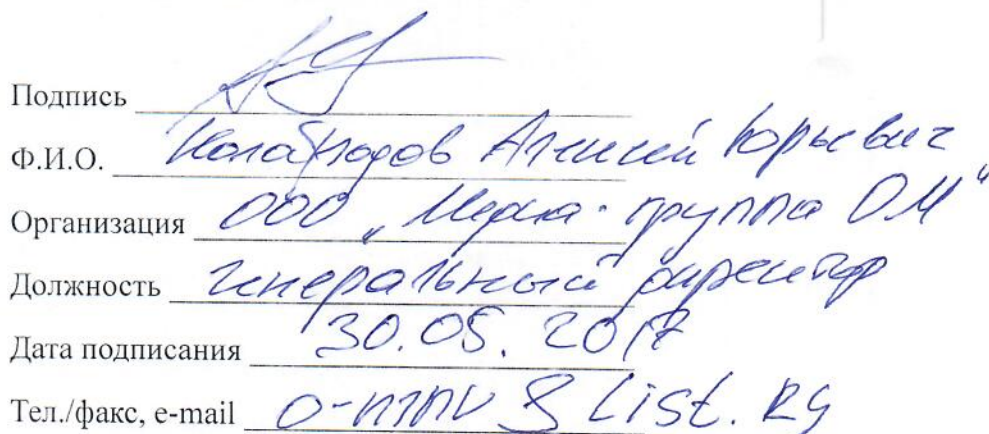 Подпись
Ф.И.О. Колобродов Алексей Юрьевич
Организация ООО „Медиа-группа ОМ“
Должность генеральный директор
Дата подписания 30.05.2017
Тел./факс, e-mail